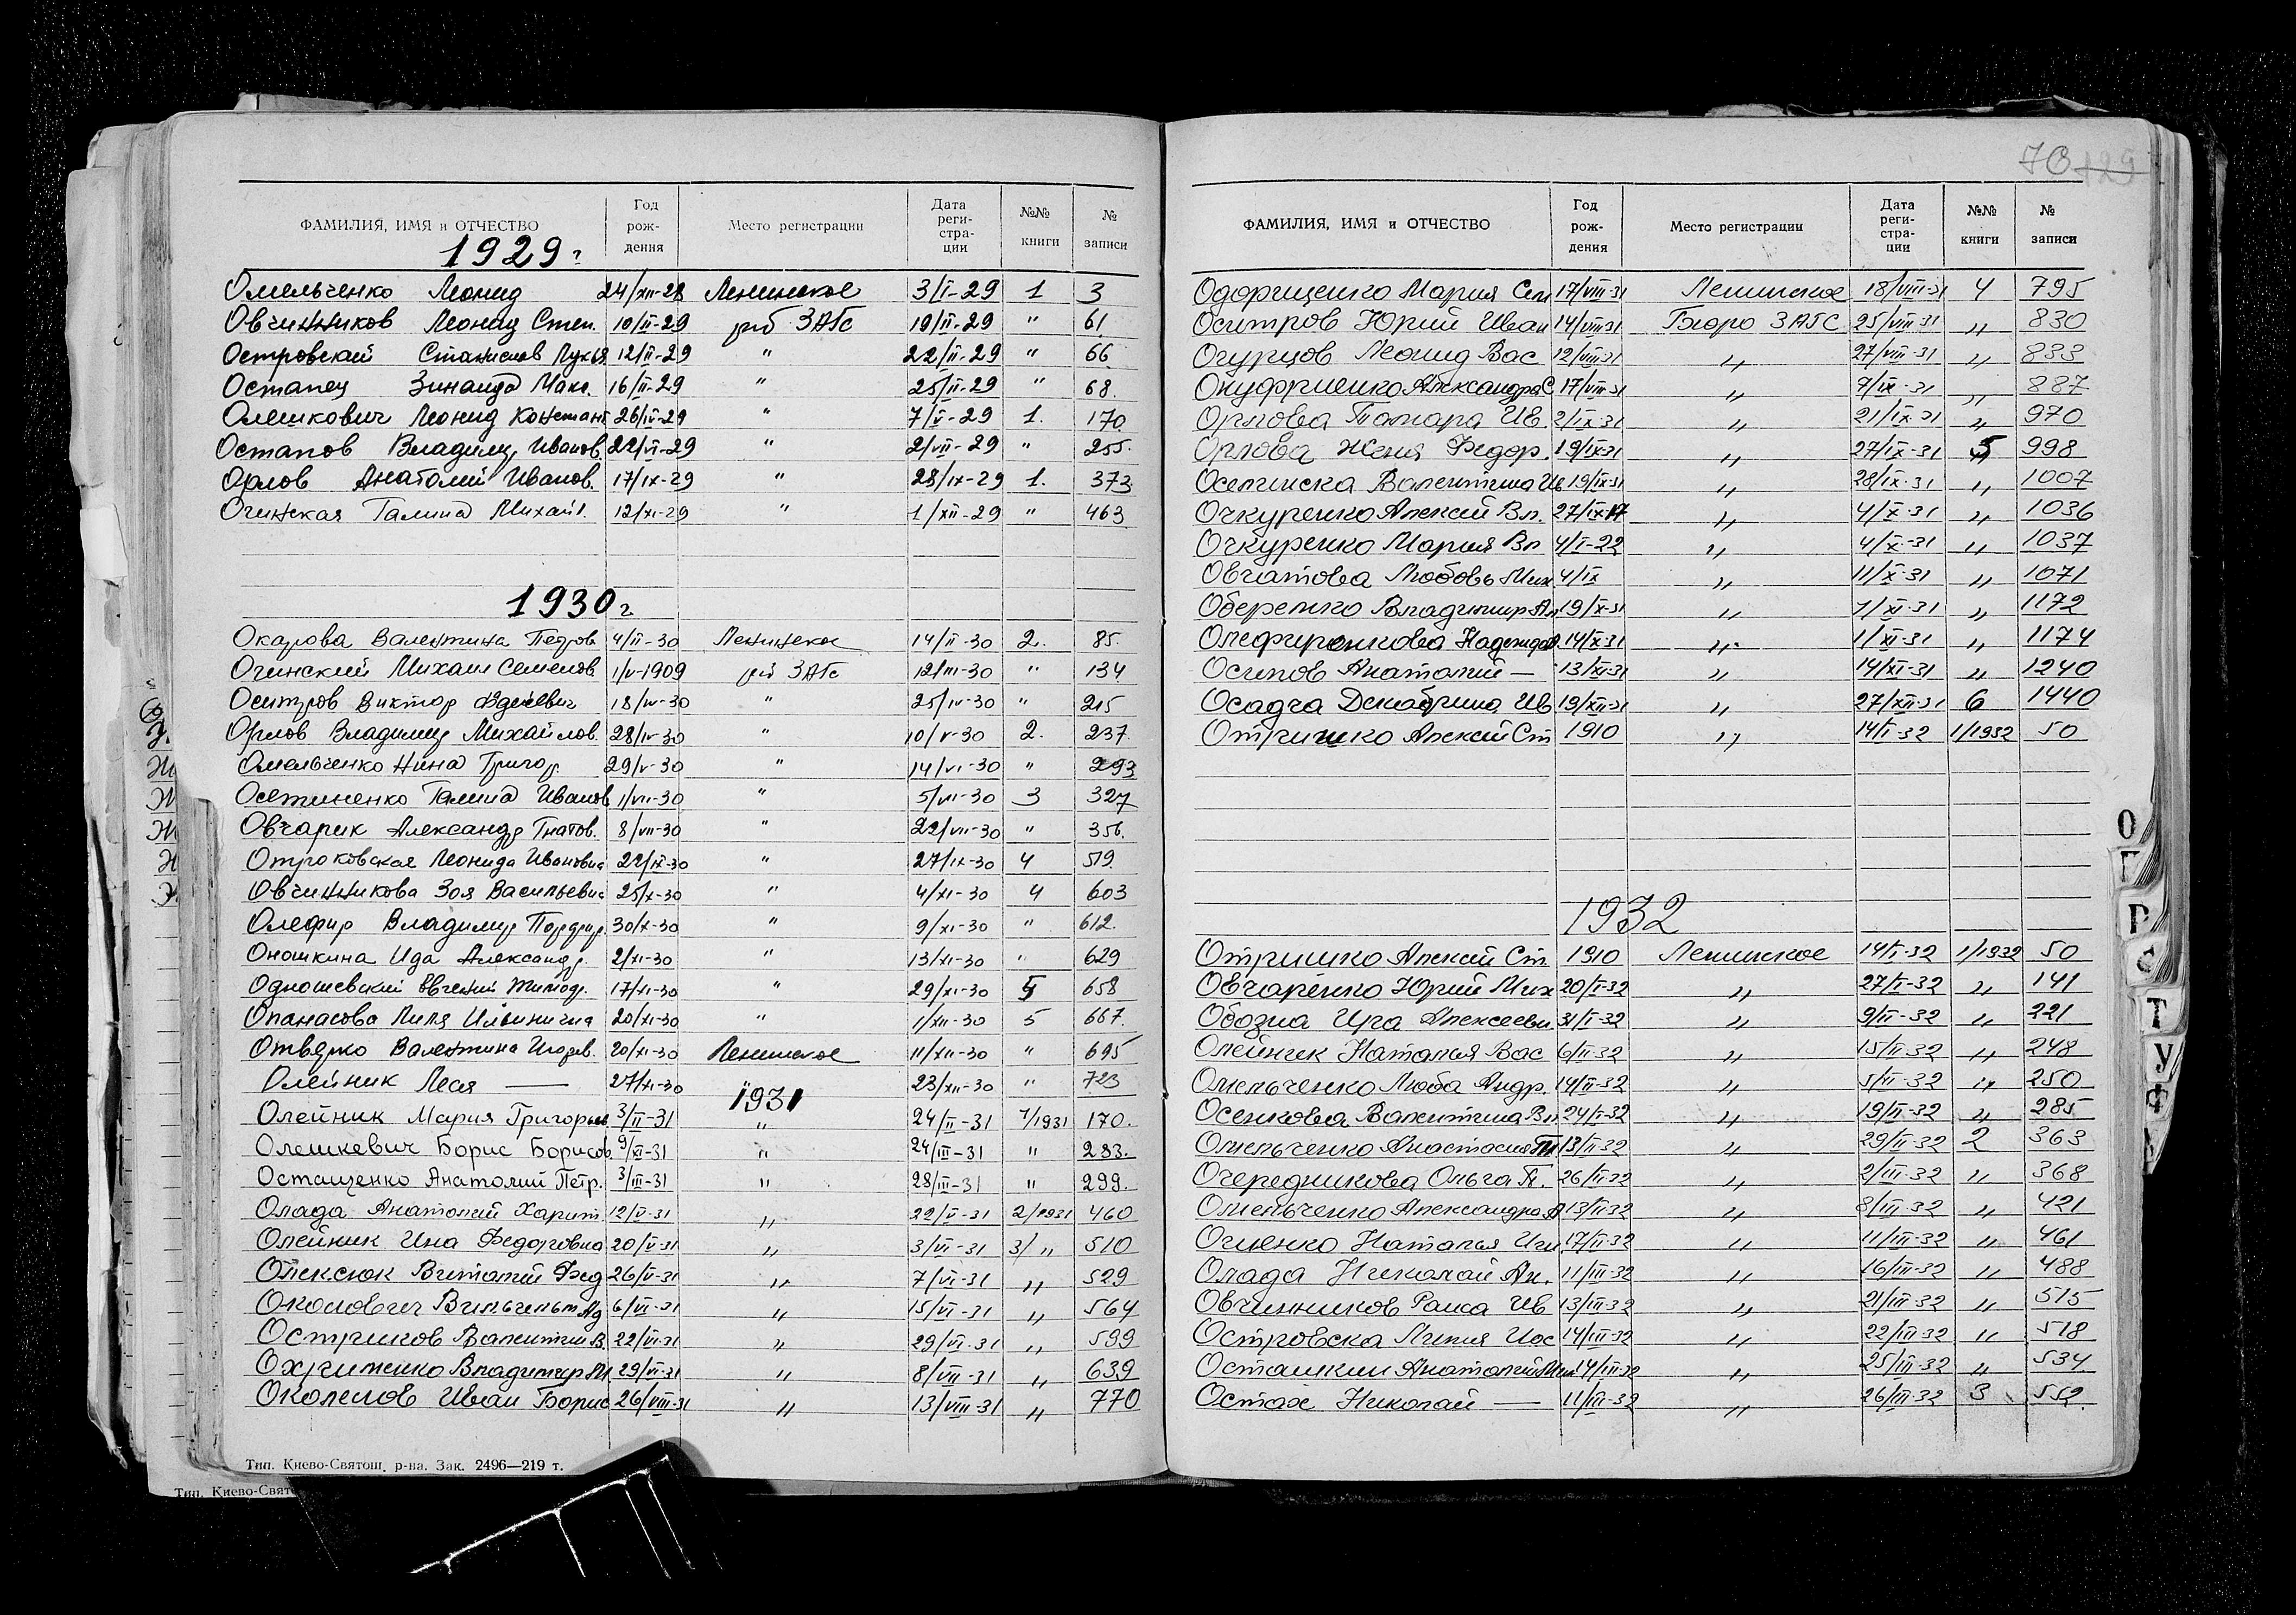 70 129
ФАМИЛИЯ, ИМЯ и ОТЧЕСТВО Год рождения Место регистрации Дата регистрации №№ книги № записи
1929 г
Омельченко Леонид 24/XII-28 Ленинское 3/I-29 1 3
Овчинников Леонид Степ. 10/II-29 рай ЗАГс 19/II-29 " 61
Островский Станислав Лукья 12/II-29 " 22/II-29 " 66
Остапец Зинаида Макс. 16/II-29 " 25/II-29 " 68.
Олешкович Леонид Констант 26/IV-29 " 7/V-29 1. 170.
Остапов Владимир Иванов. 22/VI-29 " 2/VII-29 " 255.
Орлов Анатолий Иванов. 17/IX-29 " 28/IX-29 1. 373
Огинская Галина Михайл. 12/XI-29 " 1/XII-29 " 463
1930 г
Окарова Валентина Петров 4/II-30 Ленинское 14/II-30 2. 85.
Огинский Михаил Семенов 1/V-1909 рай ЗАГс 12/III-30 " 134
Оситров Виктор 18/IV-30 " 25/IV-30 " 215
Орлов Владимир Михайлов. 28/IV-30 " 10/V-30 2. 237.
Омельченко Нина Григор. 29/V-30 " 14/VI-30 " 293
Осетиненко Галина Иванов 1/VII-30 " 5/VII-30 3 327
Овчарик Александр Гнатов. 8/VII-30 " 22/VII-30 " 356.
Отроковская Леонида Ивановна 22/IX-30 " 27/IX-30 4 519.
Овчинникова Зоя Васильевна 25/X-30 " 4/XI-30 4 603
Олефир Владимир Порфир. 30/X-30 " 9/XI-30 " 612.
Оношкина Ида Александр. 2/XI-30 " 13/XI-30 " 629
Одношевский Евгений Тимоф. 17/XI-30 " 29/XI-30 5 658
Опанасова Лиля Ильинична 20/XI-30 " 1/XII-30 5 667.
Отвърко Валентина Игорев. 20/XI-30 Ленинское 11/XII-30 " 695
Олейник Леся — 27/XI-30 " 23/XII-30 " 723
1931
Олейник Мария Григорьев 3/II-31 " 24/II-31 1/1931 170.
Олешкевич Борис Борисов. 9/XI-31 " 24/III-31 " 283.
Остащенко Анатолий Петр. 3/III-31 " 28/III-31 " 299.
Олада Анатолий Харит 12/V-31 " 22/V-31 2/1931 460
Олейник Ина Федоровна 20/V-31 " 3/VI-31 3/" 510
Олексюк Виталий Фед 26/V-31 " 7/VI-31 " 529
Околович Вильгельм Ад 6/VI-31 " 15/VI-31 " 564
Остриков Валентин В. 22/VI-31 " 29/VI-31 " 599
Охрименко Владимир М 29/VI-31 " 8/VII-31 " 639
Околелов Иван Борис 26/VIII-31 " 13/VIII-31 " 770
Тип. Киево-Святош. р-на. Зак. 2496—219 т.
Тип. Киево-Свято
ФАМИЛИЯ, ИМЯ и ОТЧЕСТВО Год рождения Место регистрации Дата регистрации №№ книги № записи
Одорищенко Мария Сем 17/VIII-31 Ленинское 18/VIII-31 4 795
Оситров Юрий Иван 14/VIII-31 Бюро ЗАГС 25/VIII-31 " 830
Огурцов Леонид Вас 12/VIII-31 " 27/VIII-31 " 833
Онуфриенко Александра С 17/VIII-31 " 7/IX-31 " 887
Орлова Тамара Ив 2/IX-31 " 21/IX-31 " 970
Орлова Женя Федор. 19/IX-31 " 27/IX-31 5 998
Оселинска Валентина Ив 19/IX-31 " 28/IX-31 " 1007
Очкуренко Алексей Вл. 27/IX-17 " 4/X-31 " 1036
Очкуренко Мария Вл 4/I-22 " 4/X-31 " 1037
Овчатова Любовь Мих 4/IX " 11/X-31 " 1071
Оберемко Владимир Ан 19/X-31 " 1/XI-31 " 1172
Олефиренкова Надежда 14/X-31 " 1/XI-31 " 1174
Осипов Анатолий — 13/XI-31 " 14/XI-31 " 1240
Осадча Декабрина Ив 19/XII-31 " 27/XII-31 6 1440
Отришко Алексей Ст 1910 " 14/I-32 1/1932 50
1932
Отришко Алексей Ст 1910 Ленинское 14/I-32 1/1932 50
Овчаренко Юрий Мих 20/I-32 " 27/I-32 " 141
Обозна Ира Алексеевн 31/I-32 " 9/II-32 " 221
Олейник Наталья Вас 6/II-32 " 15/II-32 " 248
Омельченко Люба Андр. 14/II-32 " 5/II-32 " 250
Осенкова Валентина Вл 24/I-32 " 19/II-32 " 285
Омельченко Анастасия 13/II-32 " 29/II-32 2 363
Очередникова Ольга П. 26/II-32 " 2/III-32 " 368
Омельченко Александра А 13/II-32 " 8/III-32 " 421
Огиенко Наталья 17/II-32 " 11/III-32 " 461
Олада Николай Ан. 11/III-32 " 16/III-32 " 488
Овчинников Раиса Ив 13/III-32 " 21/III-32 " 515
Островска Лилия Иос 14/III-32 " 22/III-32 " 518
Осташкин Анатолий Мих 14/III-32 " 25/III-32 " 534
Остах Николай — 11/III-32 " 26/III-32 3 552.
О
П
Р
С
Т
У
Ф